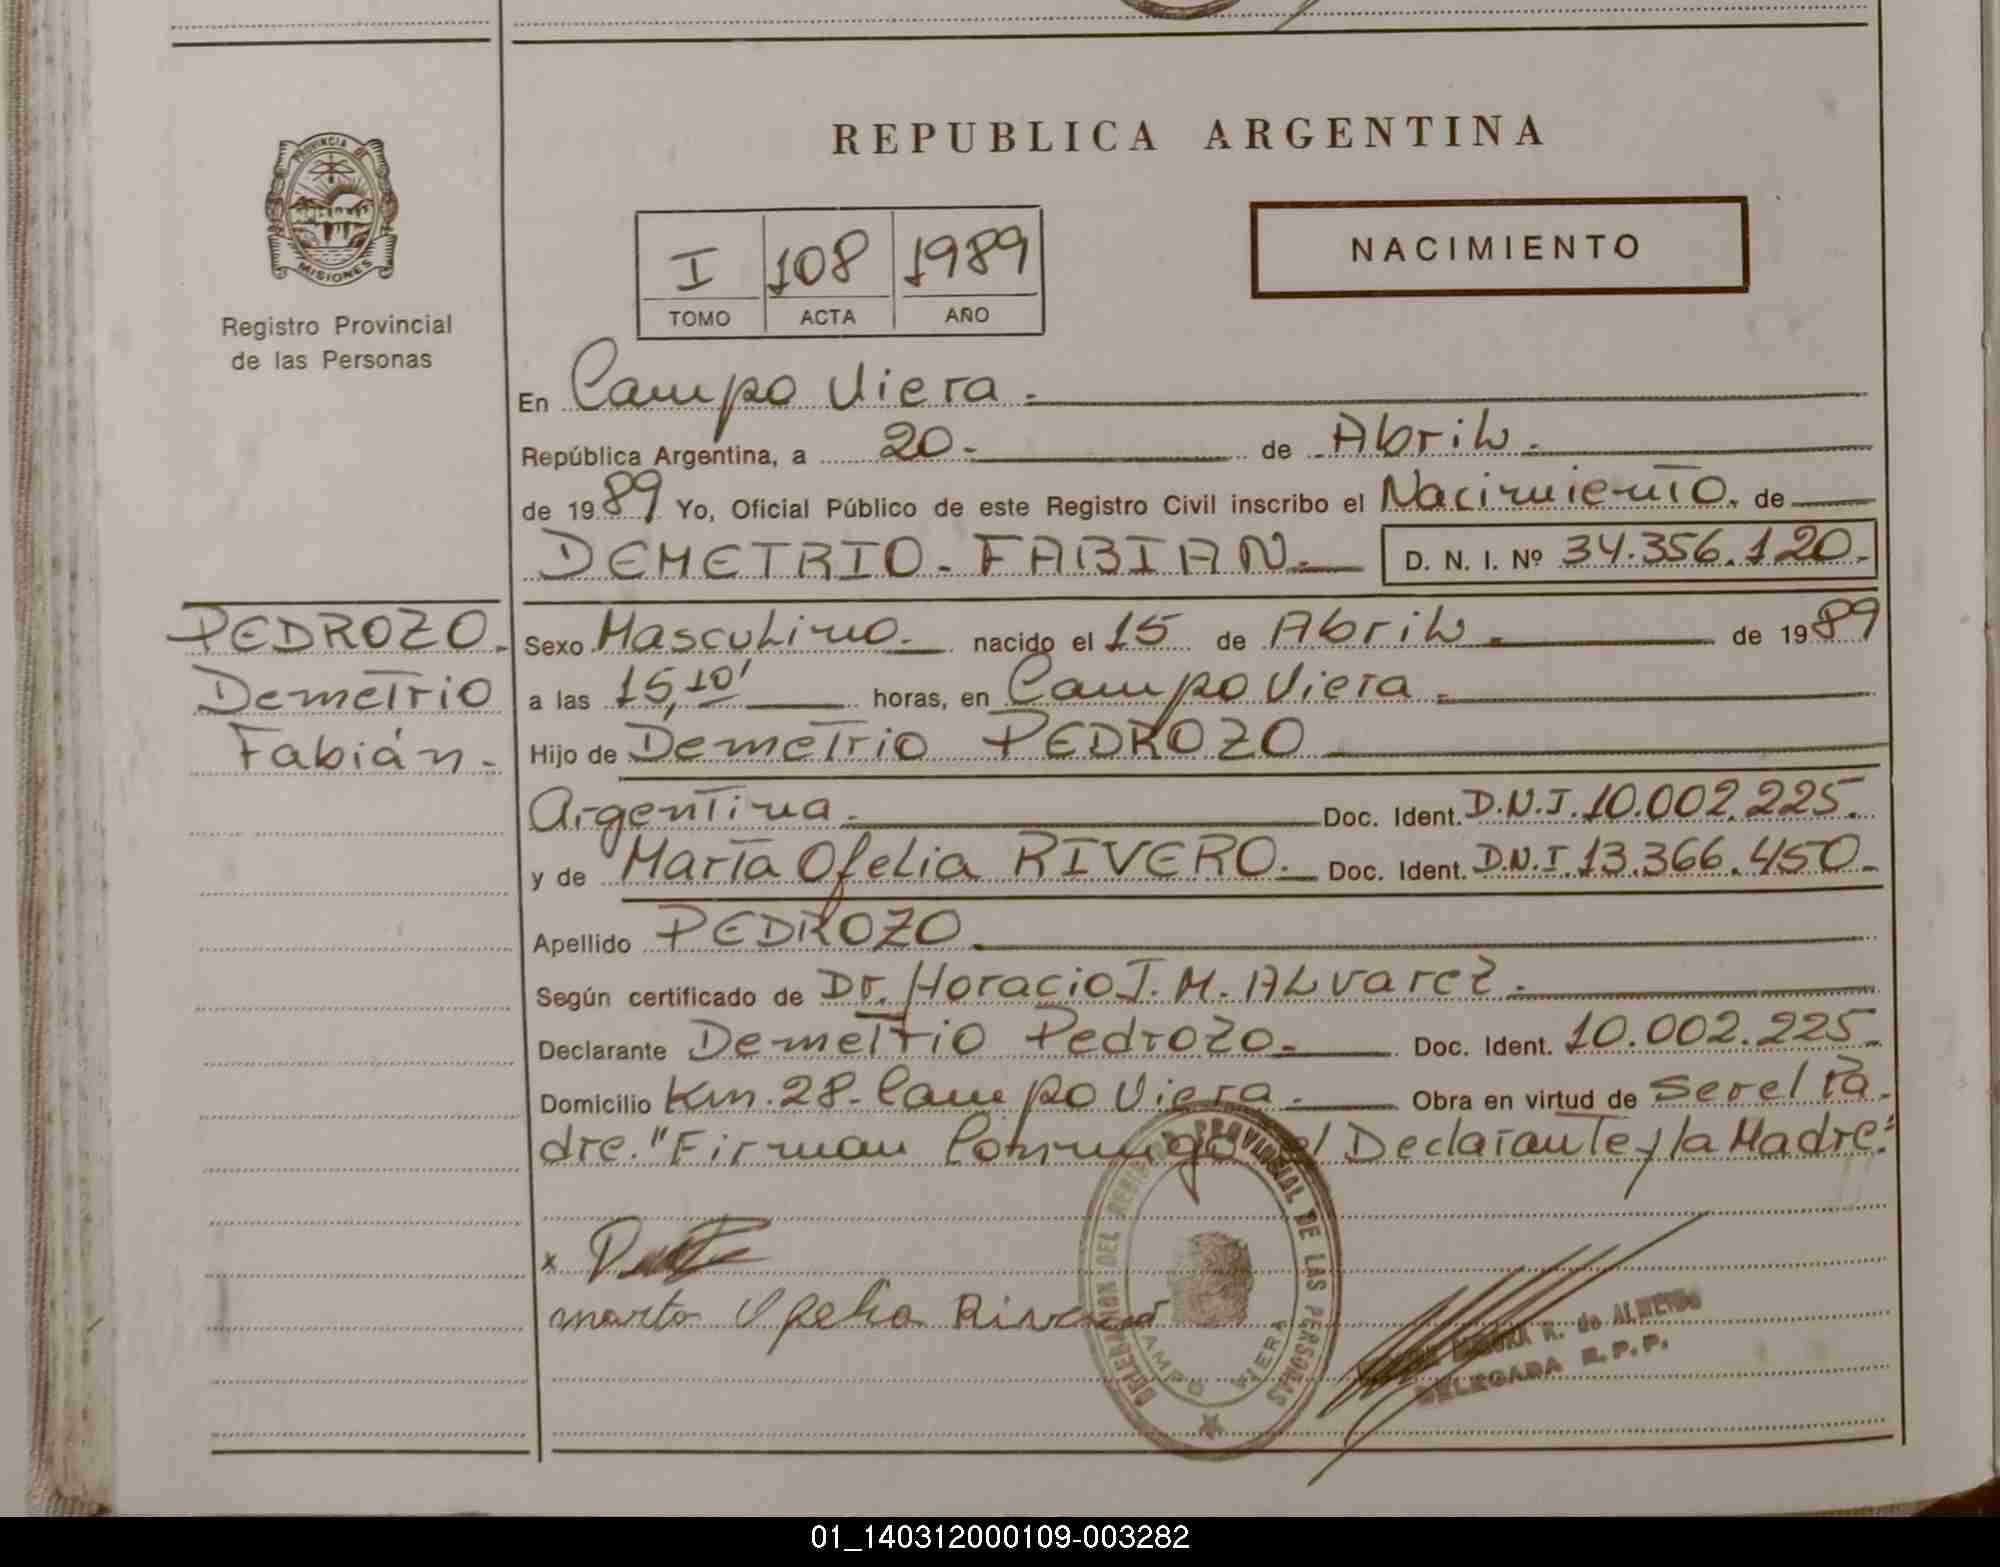 REPUBLICA ARGENTINA
PROVINCIA DE
MISIONES
Registro Provincial
de las Personas
I 108 1989
TOMO ACTA AÑO
NACIMIENTO
En Campo Viera.
República Argentina, a 20. de Abril.
de 1989 Yo, Oficial Público de este Registro Civil inscribo el Nacimiento. de
DEMETRIO. FABIAN. D. N. I. Nº 34.356.120.
PEDROZO.
Demetrio
Fabián.
Sexo Masculino. nacido el 15 de Abril. de 1989
a las 15,10' horas, en Campo Viera.
Hijo de Demetrio PEDROZO
Argentina. Doc. Ident. D.N.I. 10.002.225.
y de María Ofelia RIVERO. Doc. Ident. D.N.I. 13.366.450.
Apellido PEDROZO
Según certificado de Dr. Horacio J. M. Alvarez.
Declarante Demetrio Pedrozo. Doc. Ident. 10.002.225.
Domicilio Km. 28. Campo Viera. Obra en virtud de Ser el Pa-
dre. "Firman Conmigo el Declarante y la Madre."
x
marta Ofelia Rivero
DELEGACION DEL REGISTRO PROVINCIAL DE LAS PERSONAS
CAMPO VIERA
R. de ALMEIDA
DELEGADA R.P.P.
01_140312000109-003282